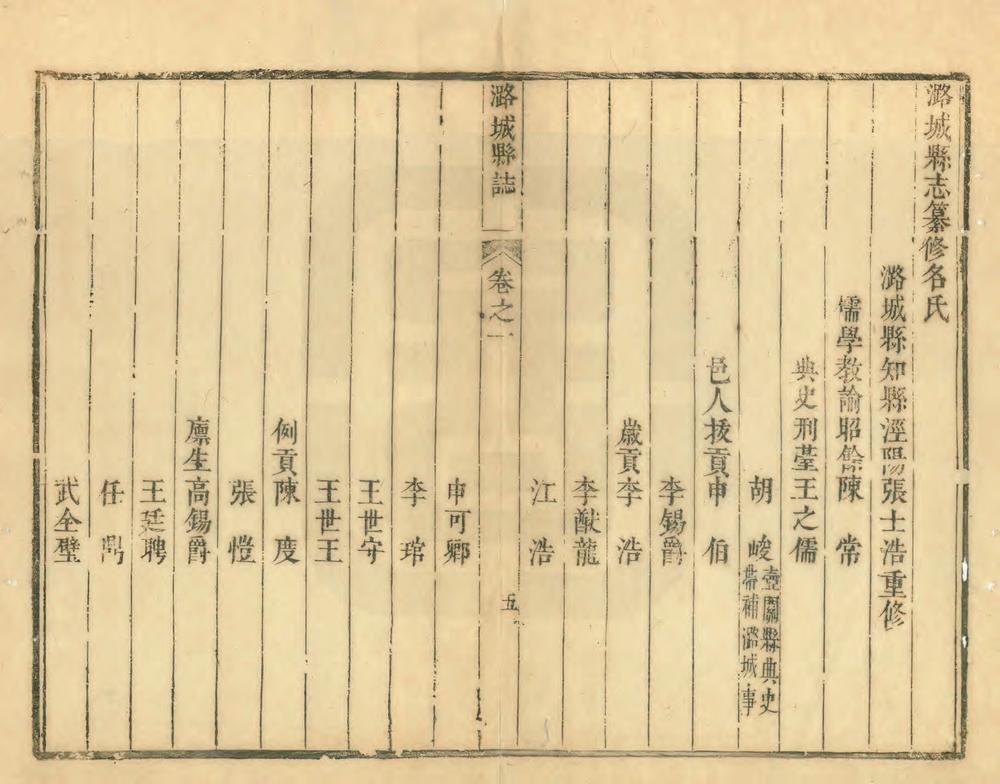 潞城縣志纂修名氏
潞城縣知縣涇陽張士浩重修
儒學教諭昭餘陳常
典史刑臺王之儒
胡峻壺關縣典史
帶補潞城事
邑人拔貢申伯
李錫爵
歲貢李浩
李猷龍
江浩
潞城縣誌
卷之一
五
申可鄉
李琯
王世守
王世王
例貢陳度
張愷
廪生高錫爵
王廷聘
任鼎
武全璧